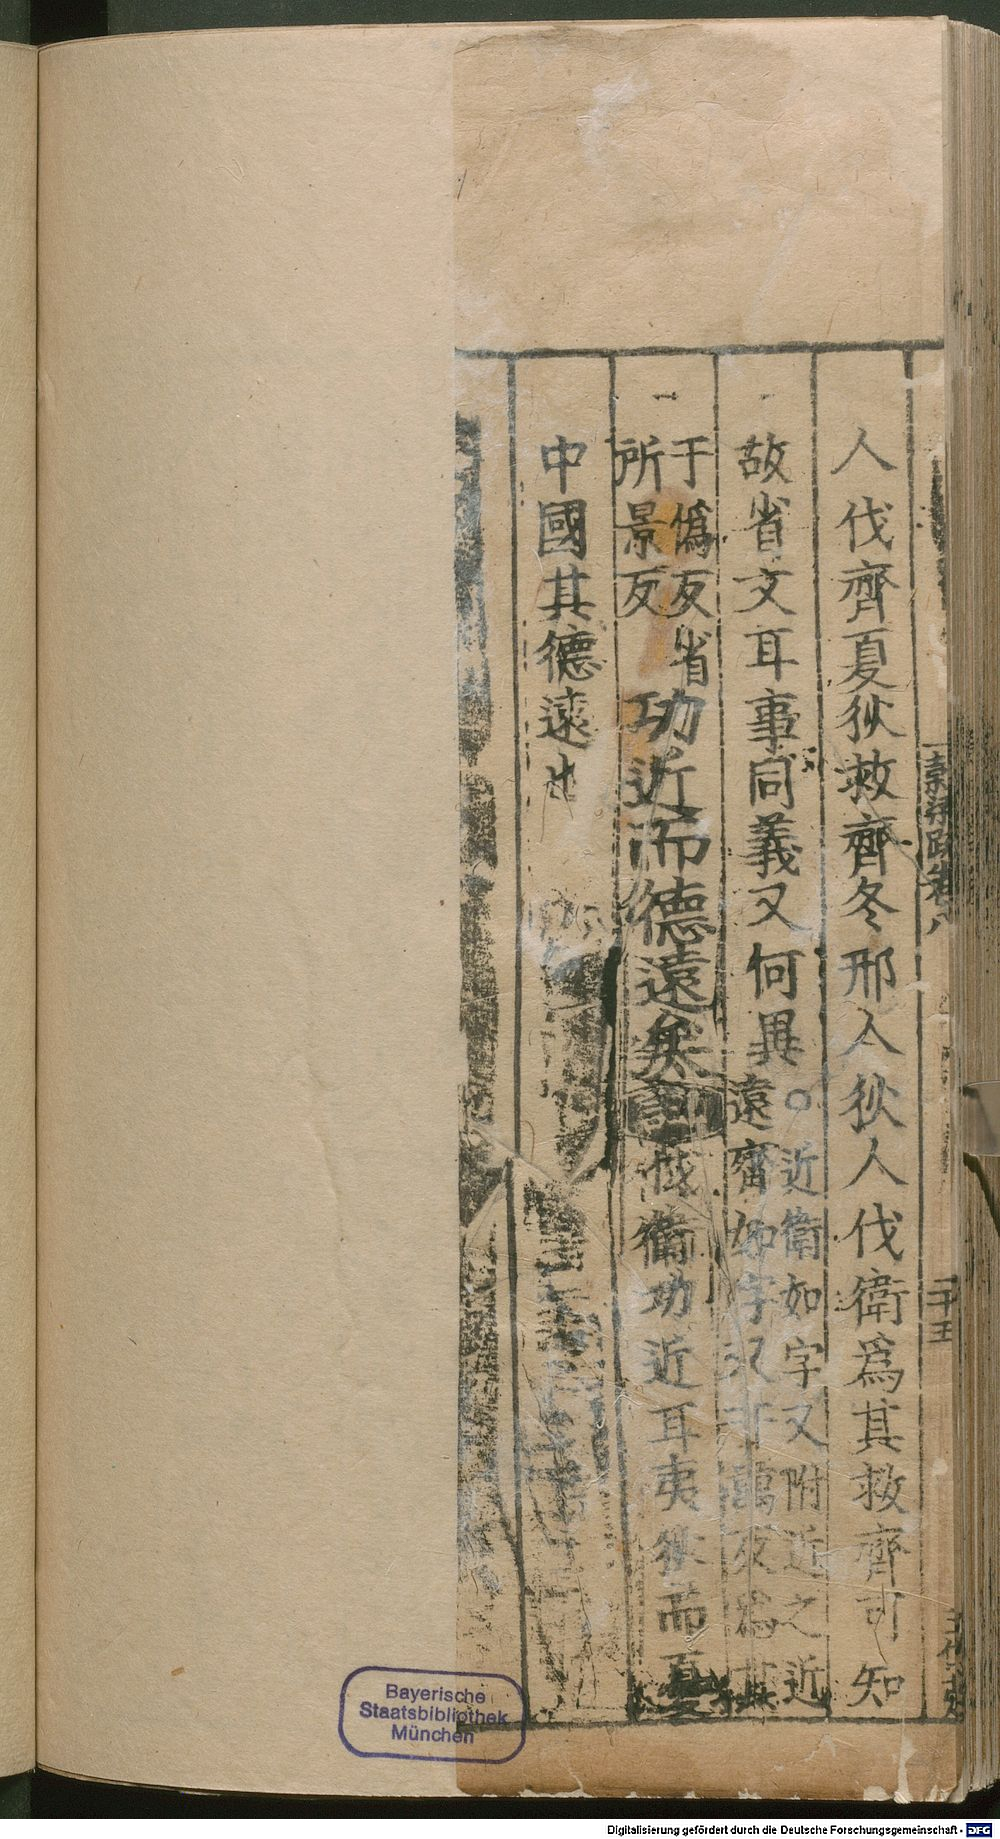 人伐齊夏狄救齊冬邢人狄人伐衛爲其救齊可知
故省文耳事同義又何異○近衛如字又附近之近
遠齊如字又于萬反爲其
于僞反省
所景反
功近而德遠矣
伐衛功近耳夷狄而憂
中國其德遠也
卷八
二十五
Bayerische
Staatsbibliothek
München
Digitalisierung gefördert durch die Deutsche Forschungsgemeinschaft - DFG